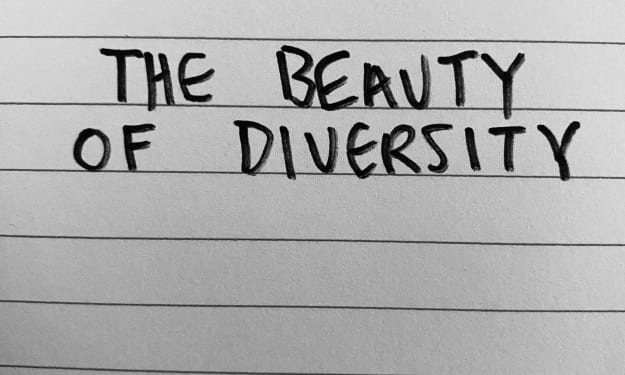 THE BEAUTY
OF DIVERSITY